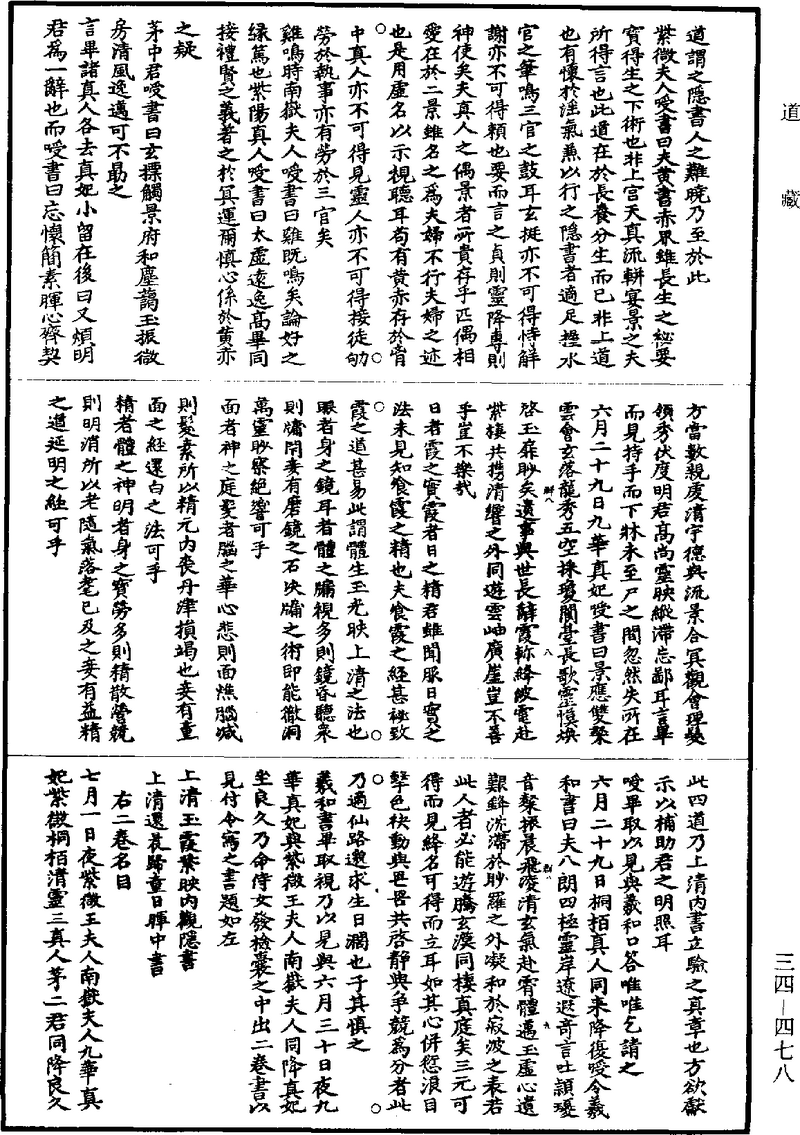 道謂之隱書人之難曉乃至於此
紫微夫人唆書曰夫黄書赤界雖長生之秘要
實得生之下術也非上宫天真流軿宴景之夫
所得言也此道在於長養分生而已非上道
也有懷於淫氣兼以行之隱書者適足握水
官之筆鳴三官之鼓耳玄挺亦不可得恃解
謝亦不可得賴也要而言之貞則靈降專則
神使矣夫真人之偶景者所貴存乎匹偶相
愛在於二景雖名之為夫婦不行夫婦之迹
也是用虚名以示視聽耳苟有黄赤存於胷
中真人亦不可得見靈人亦不可得接徒劬
勞於執事亦有勞於三官矣
雞鳴時南嶽夫人唆書曰雞既鳴矣論好之
緣篤也紫陽真人唆書曰太虚遠逸髙畢同
接禮賢之義著之於冥運爾慎心係於黄赤
之疑
茅中君唆書曰玄標觸景府和塵藹玉振微
房清風逸邁可不勗之
言畢諸真人各去真妃小留在後曰又煩明
君為一辭也而唆書曰忘懷簡素暉心齊契
方當數親虔清宇德與流景合冥觀會理髮
領秀伏度明君髙尚靈映縱滯忘鄙耳言畢
而見持手而下牀未至户之間忽然失所在
六月二十九日九華真妃唆書曰景應雙粲
雲會玄落龍秀五空採瓊閬臺長歌靈慎焕
啓玉扉眇矣遺事與世長辭霞軫絳披電赴
紫棲共携清響之外同遊雲岫廣崖豈不善
乎豈不樂哉
日者霞之實霞者日之精君雖聞服日實之
法未見知飡霞之精也夫食霞之經甚祕致
霞之道甚易此謂體生玉光映上清之法也
眼者身之鏡耳者體之牖視多則鏡昏聽衆
則牖閉妾有磨鏡之石决牖之術即能徹洞
萬靈眇察絶響可乎
面者神之庭髪者腦之華心悲則面燋腦減
則髮素所以精元内喪丹津損竭也妾有童
面之經還白之法可乎
精者體之神明者身之寶勞多則精散營競
則明消所以老隨氣落耄已及之妾有益精
之道延明之經可乎
此四道乃上清内書立驗之真章也方欲獻
示以補助君之明照耳
唆畢取以見與羲和口答唯唯乞請之
六月二十九日桐栢真人同来降復唆令羲
和書曰夫八朗四極靈岸遼遐奇言吐頴瓊
音粲振晨飛淩清玄氣赴霄體邁玉虚心遺
艱鋒沈滯於眇羅之外凝和於寂波之表若
此人者必能遊騰玄漠同棲真庭矣三元可
得而見絳名可得而立耳如其心併愆浪目
擊色袂動與罟罟共啓靜與爭競為分者此
乃適仙路邈求生日濶也子其慎之
羲和書畢取視乃以見與六月三十日夜九
華真妃與紫微王夫人南嶽夫人同降真妃
坐良久乃命侍女發檢囊之中出二卷書以
見付令寫之書題如左
上清玉霞紫映内觀隱書
上清還晨歸童日暉中書
右二卷名目
七月一日夜紫微王夫人南嶽夫人九華真
妃紫微桐栢清靈三真人茅二君同降良久
道藏
三四—四七八